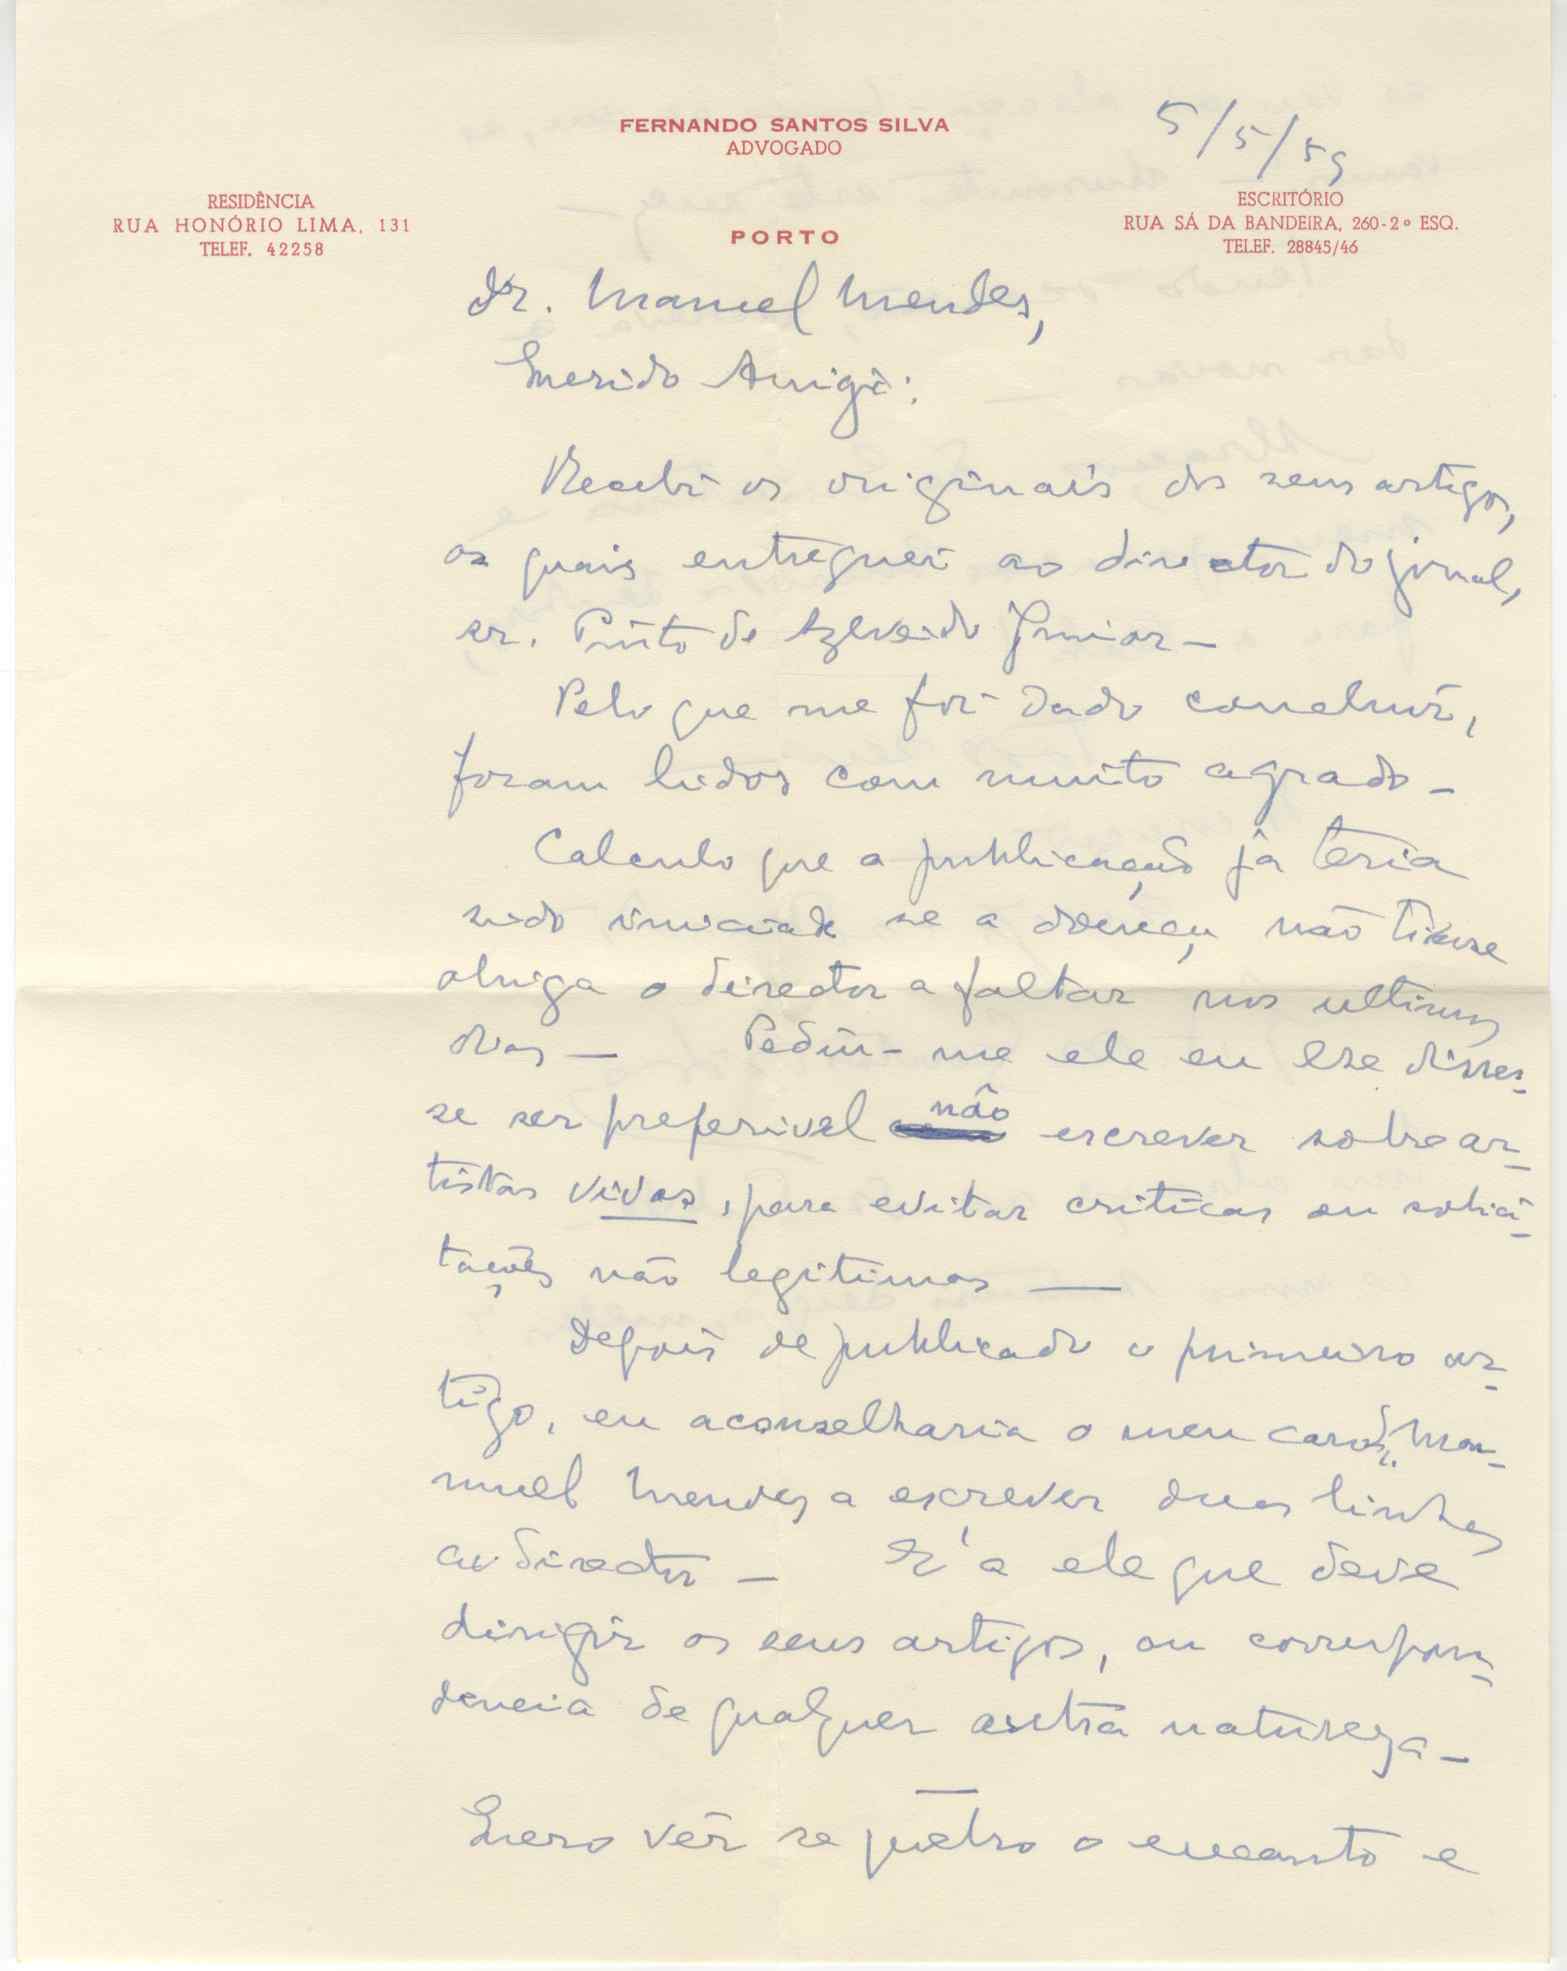 FERNANDO SANTOS SILVA
ADVOGADO
5/5/59
RESIDÊNCIA
RUA HONÓRIO LIMA, 131
TELEF. 42258
PORTO
ESCRITÓRIO
RUA SÁ DA BANDEIRA, 260-2º ESQ.
TELEF. 28845/46
Dr. Manuel Mendes,
Querido Amigo:
Recebi os originais dos seus artigos,
os quais entreguei ao director do jornal,
sr. Pinto de Azevedo Junior —
Pelo que me foi dado concluir,
foram lidos com muito agrado —
Calculo que a publicação já teria
sido iniciada se a doença não tivesse
obriga o director a faltar nos ultimos
dias — Pediu-me ele eu lhe disses-
se ser preferivel não escrever sobre ar-
tistas vivos, para evitar criticas ou solici-
tações não legitimas —
Depois de publicado o primeiro ar-
tigo, eu aconselharia o meu caro Dr. Ma-
nuel Mendes a escrever duas linhas
ao director — E' a ele que deve
dirigir os seus artigos, ou correspon-
dencia de qualquer outra natureza —
Quero vêr se quebro o encanto e